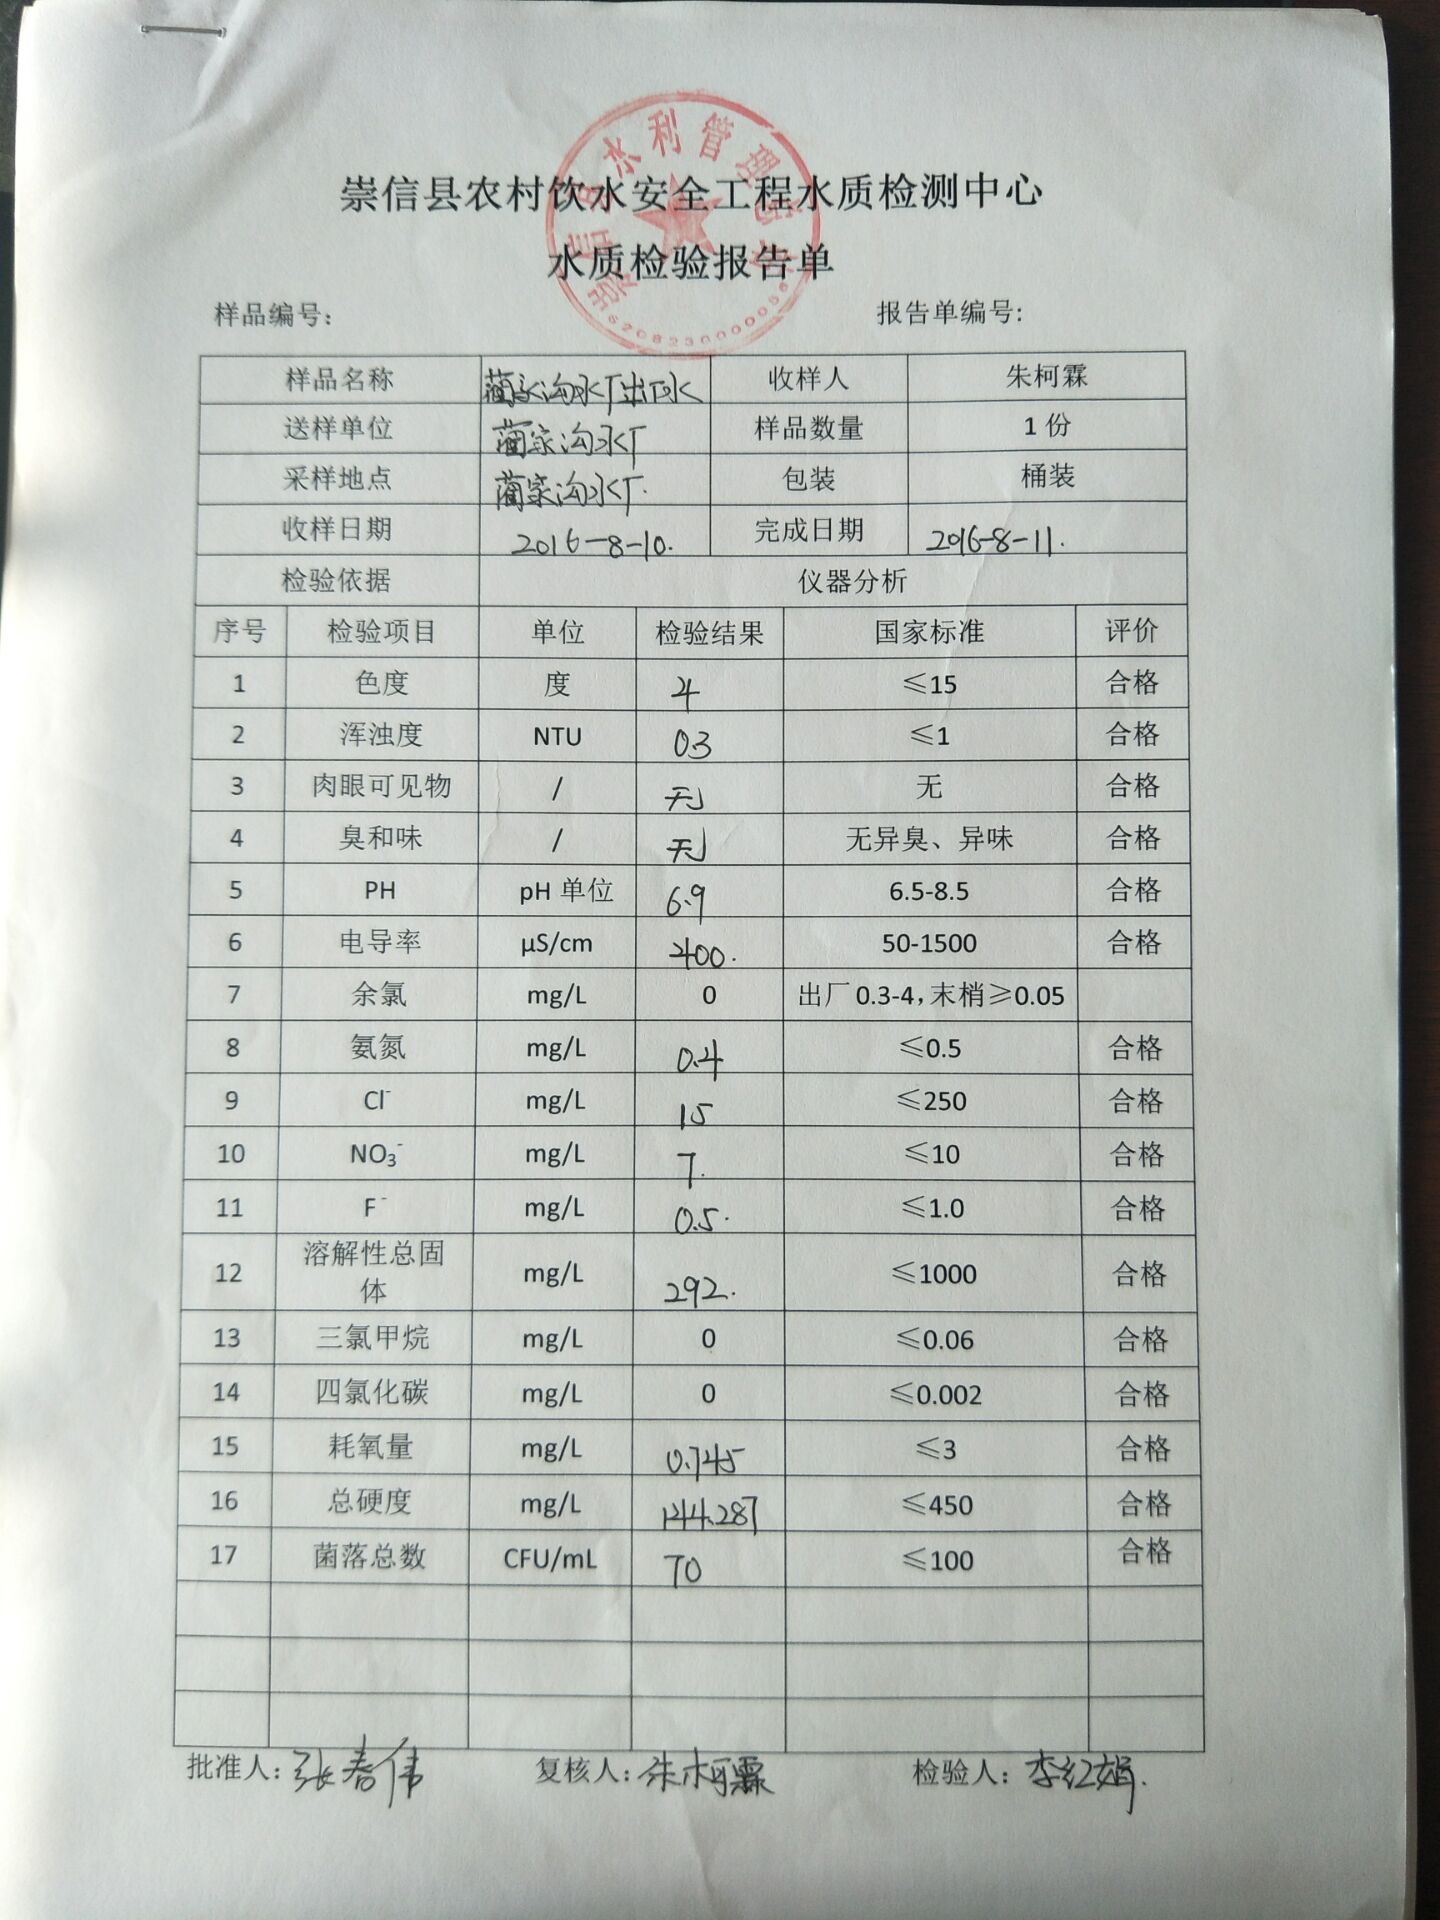 崇信县水利管理
6208230000056
崇信县农村饮水安全工程水质检测中心
水质检验报告单
样品编号： 报告单编号:
样品名称 蔺家沟水厂出厂水 收样人 朱柯霖
送样单位 蔺家沟水厂 样品数量 1 份
采样地点 蔺家沟水厂. 包装 桶装
收样日期 2016-8-10. 完成日期 2016-8-11.
检验依据 仪器分析
序号 检验项目 单位 检验结果 国家标准 评价
1 色度 度 4 ≤15 合格
2 浑浊度 NTU 0.3 ≤1 合格
3 肉眼可见物 / 无 无 合格
4 臭和味 / 无 无异臭、异味 合格
5 PH pH 单位 6.9 6.5-8.5 合格
6 电导率 μS/cm 400. 50-1500 合格
7 余氯 mg/L 0 出厂 0.3-4，末梢≥0.05
8 氨氮 mg/L 0.4 ≤0.5 合格
9 Cl⁻ mg/L 15 ≤250 合格
10 NO₃⁻ mg/L 7. ≤10 合格
11 F⁻ mg/L 0.5. ≤1.0 合格
12 溶解性总固 mg/L 292. ≤1000 合格
体
13 三氯甲烷 mg/L 0 ≤0.06 合格
14 四氯化碳 mg/L 0 ≤0.002 合格
15 耗氧量 mg/L 0.745 ≤3 合格
16 总硬度 mg/L 144.287 ≤450 合格
17 菌落总数 CFU/mL 70 ≤100 合格
批准人：张春伟 复核人：朱柯霖 检验人：李红娟.